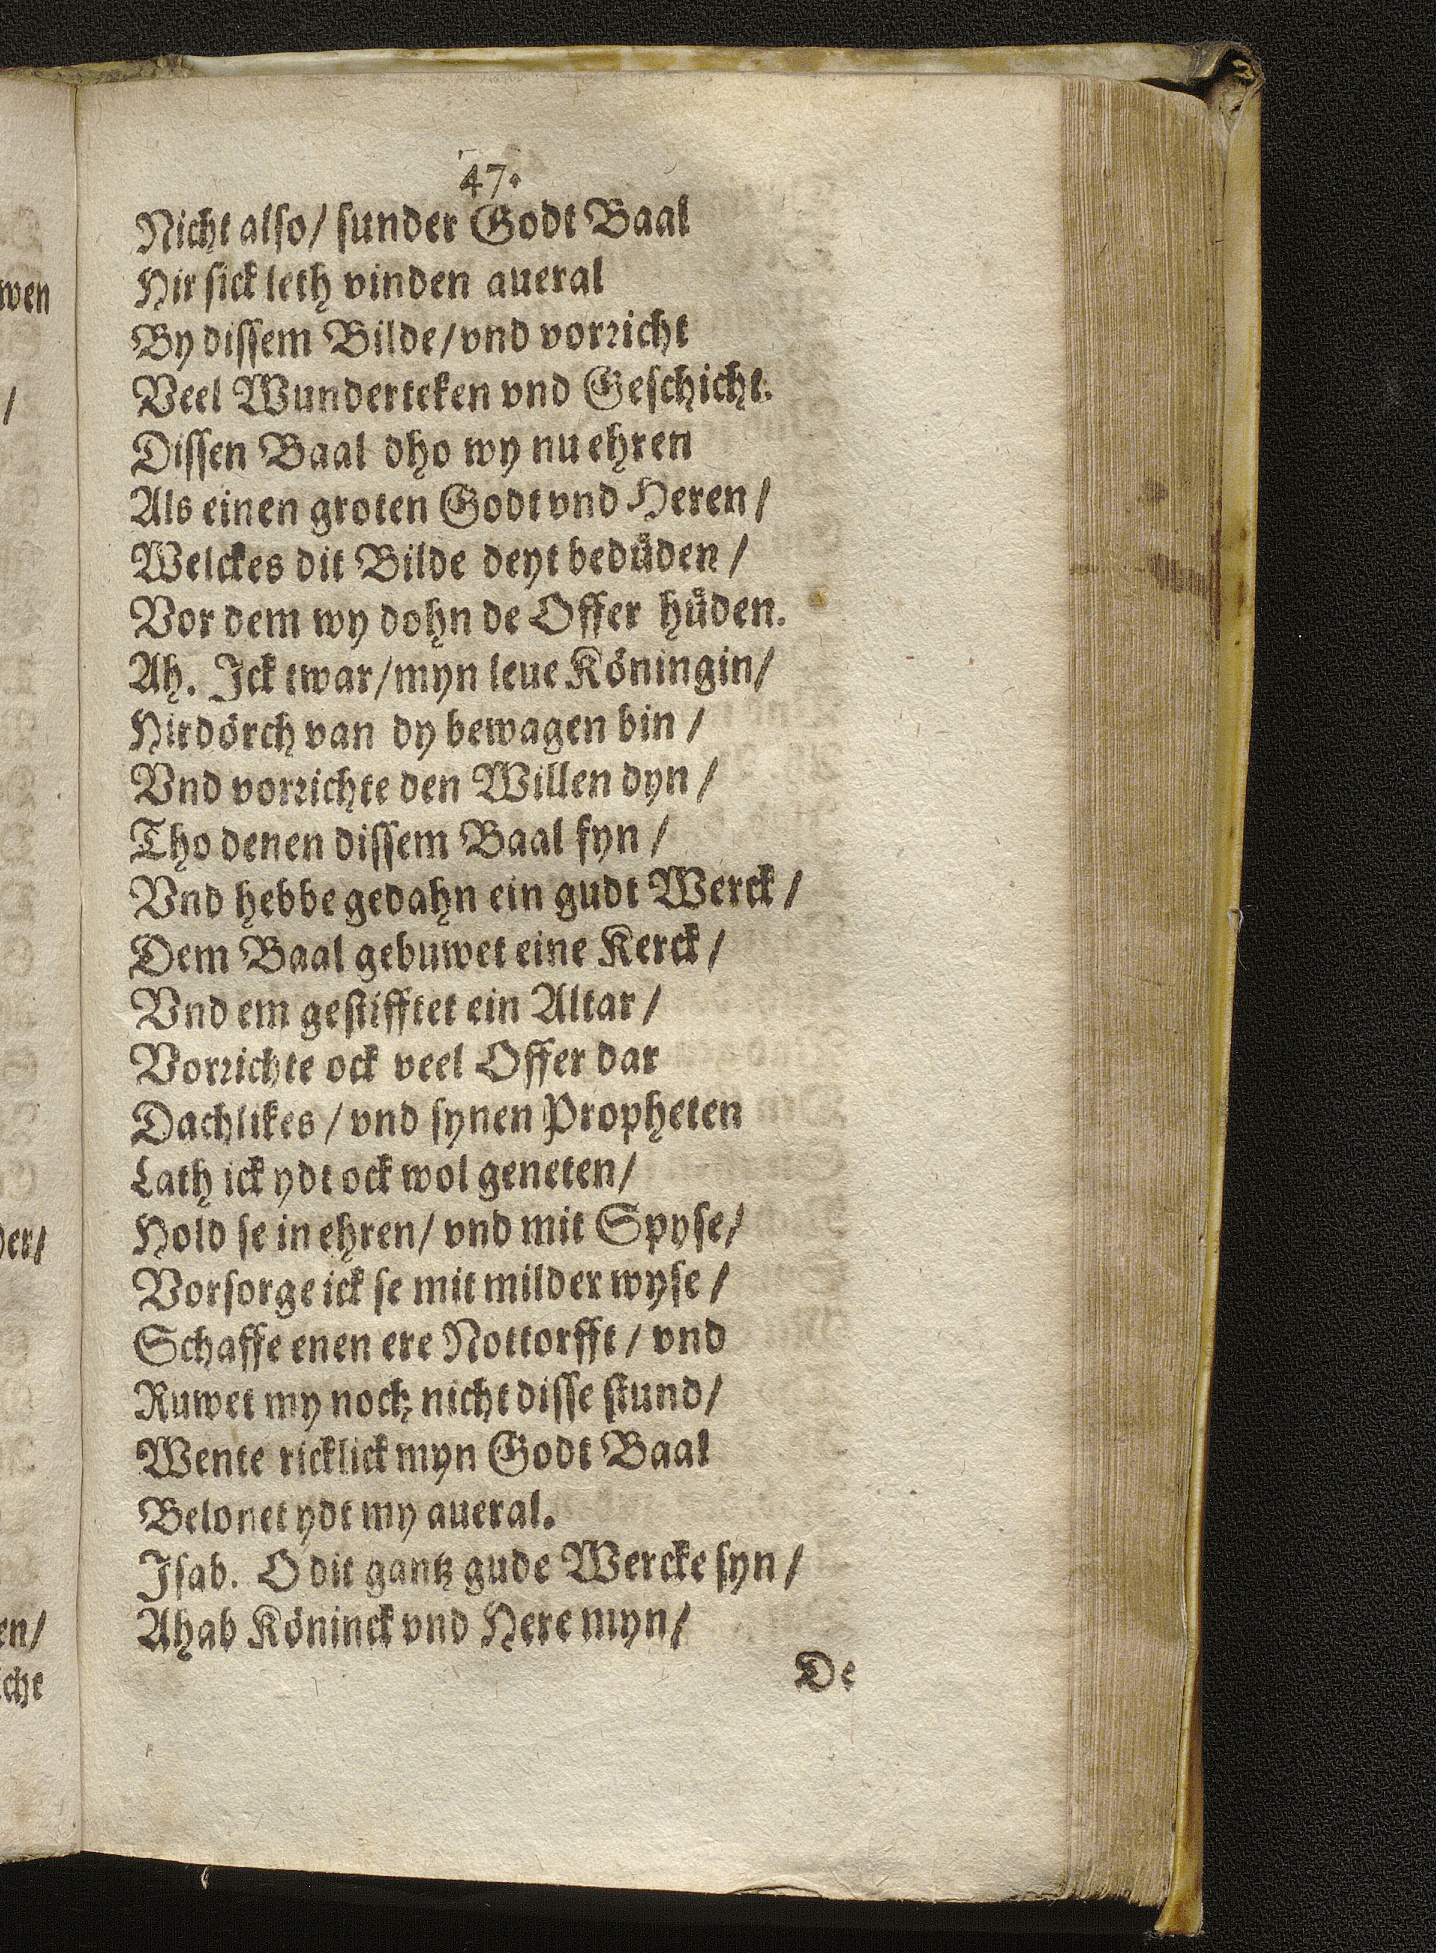 47.
Nicht also/ sunder Godt Baal
Hir sick leth vinden aueral
By dissem Bilde/vnd vorricht
Veel Wunderteken vnd Geschicht.
Dissen Baal dho wy nu ehren
Als einen groten Godt vnd Heren/
Welckes dit Bilde deyt bedüden/
Vor dem wy dohn de Offer hüden.
Ah. Ick twar/myn leue Köningin/
Hirdörch van dy bewagen bin/
Vnd vorrichte den Willen dyn/
Tho denen dissem Baal fyn/
Vnd hebbe gedahn ein gudt Werck/
Dem Baal gebuwet eine Kerck/
Vnd em gestifftet ein Altar/
Vorrichte ock veel Offer dar
Dachlikes/ vnd synen Propheten
Lath ick ydt ock wol geneten/
Hold se in ehren/ vnd mit Spyse/
Vorsorge ick se mit milder wyse/
Schaffe enen ere Nottorfft/ vnd
Ruwet my noch nicht disse stund/
Wente ricklick myn Godt Baal
Belonet ydt my aueral.
Isab. O dit gantz gude Wercke syn/
Ahab Köninck vnd Here myn/
De
wen
/
der/
en/
icht